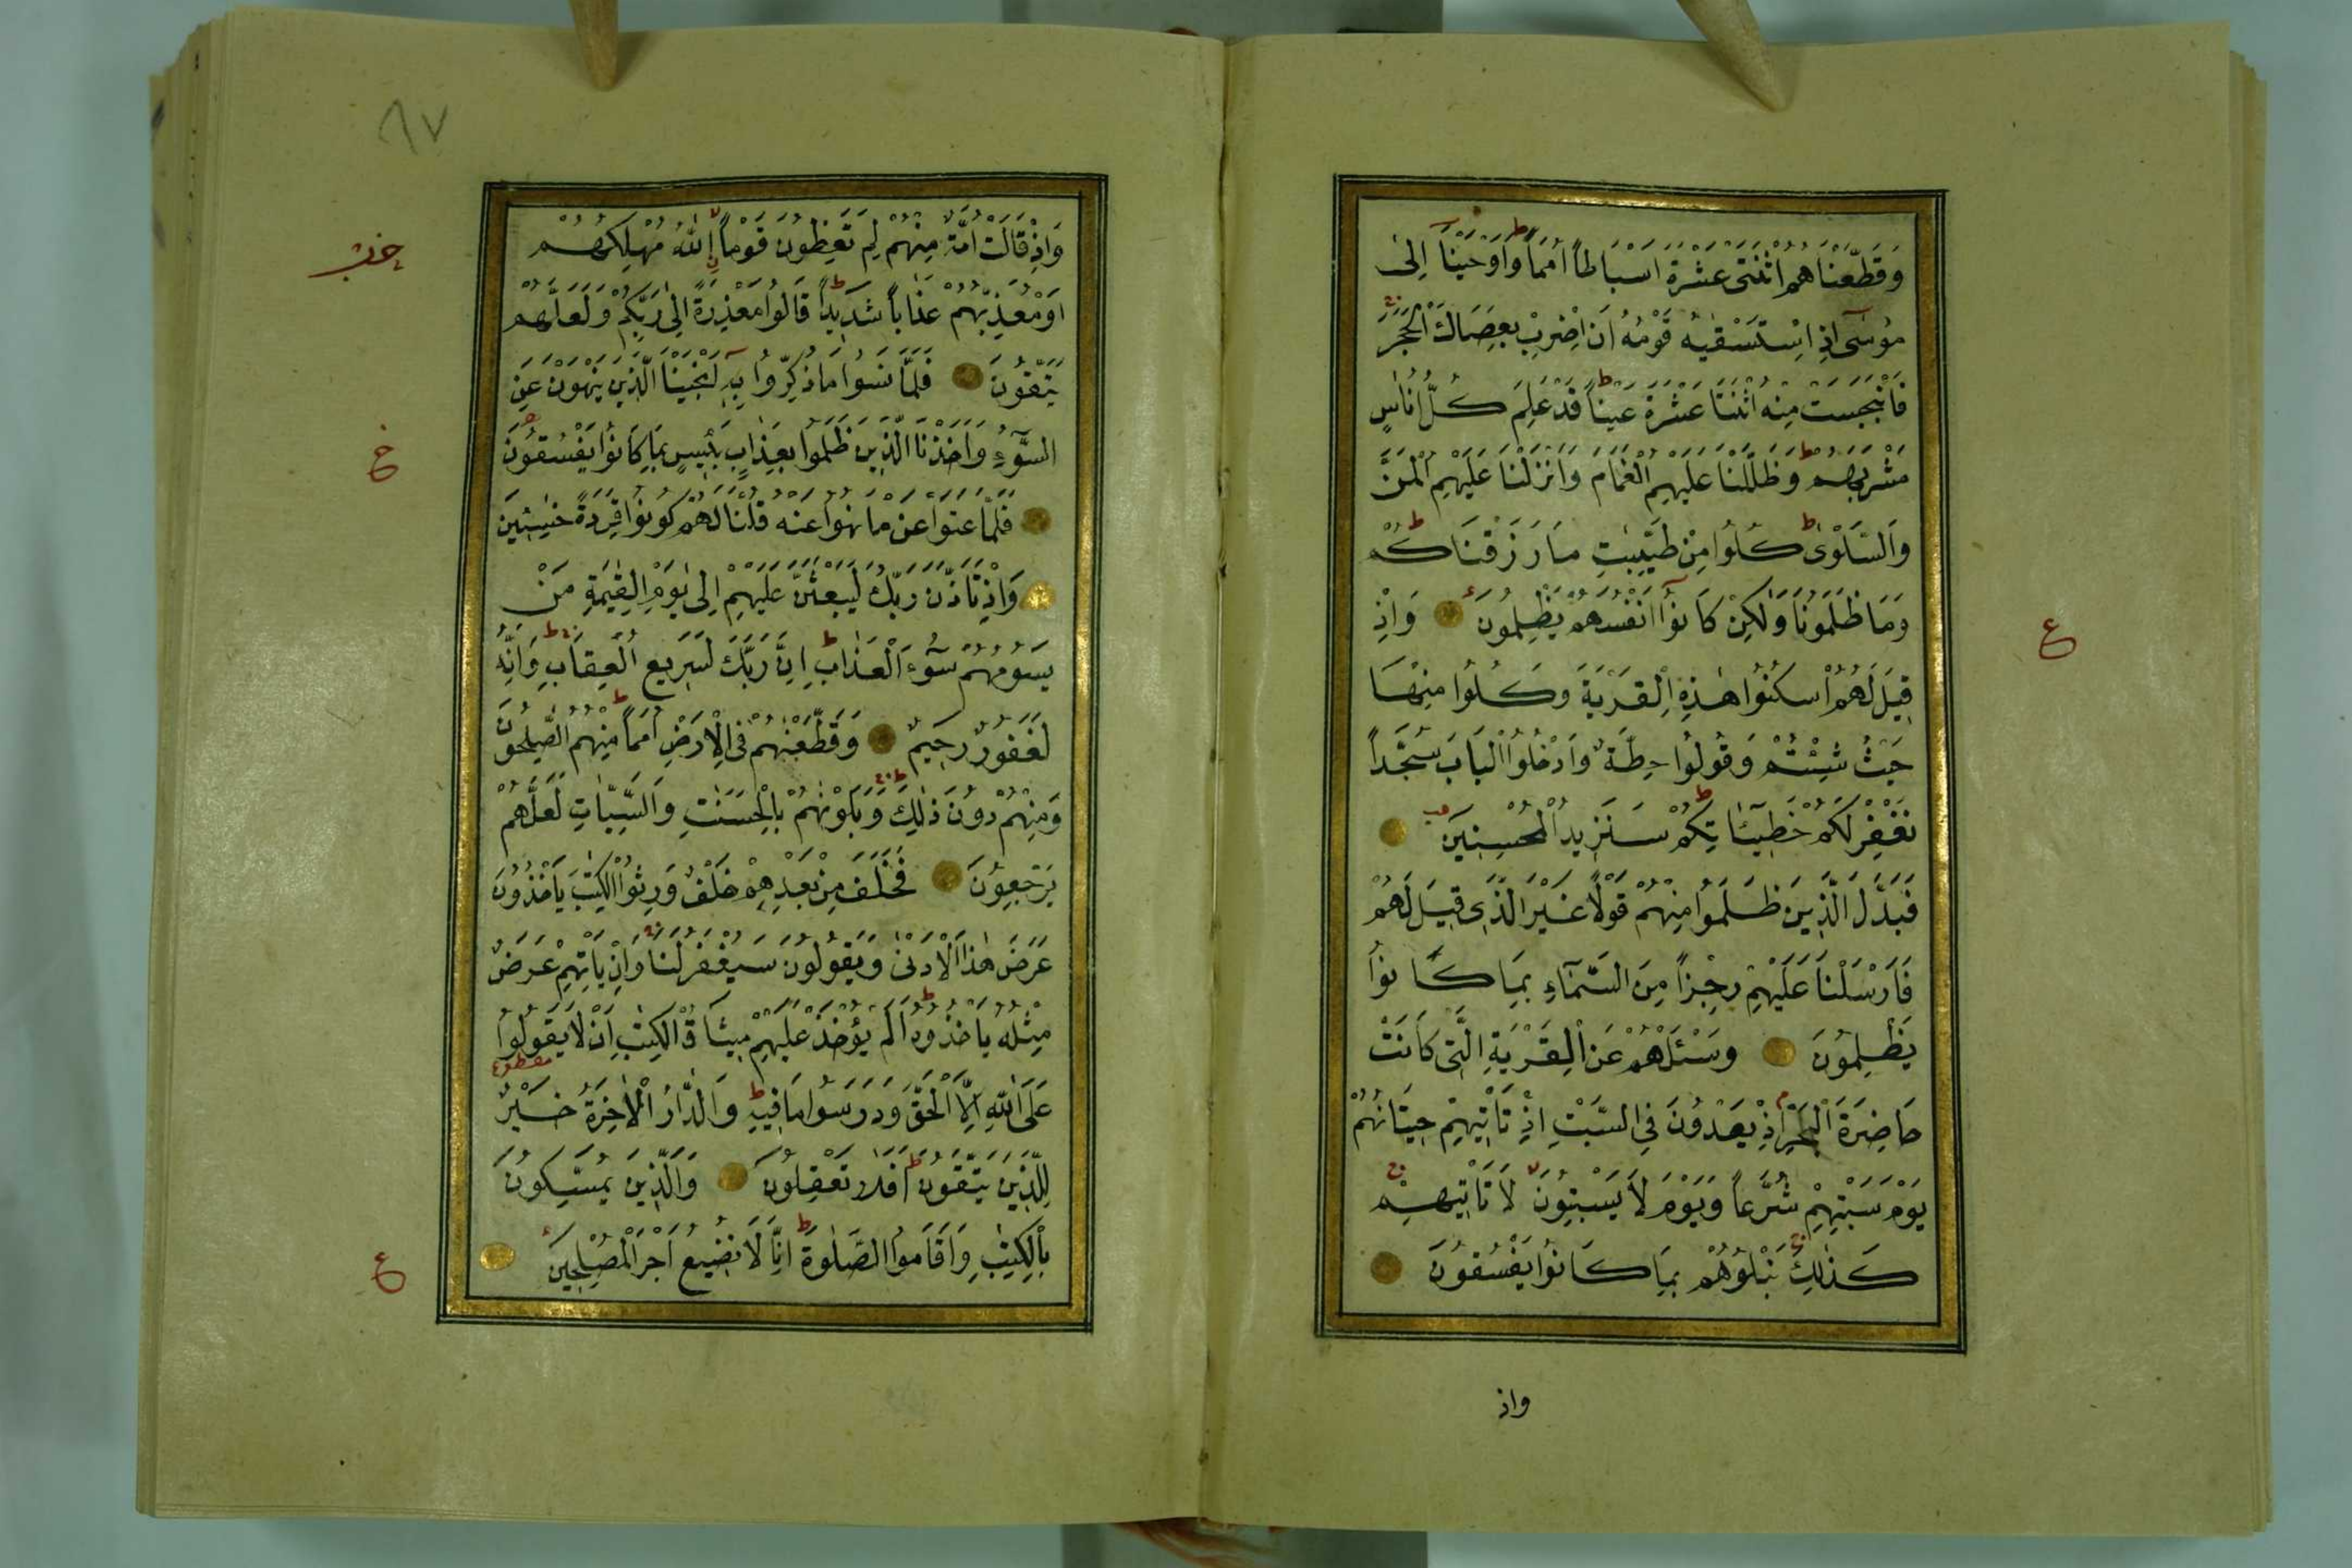 وَقَطَّعْنَاهُمُ اثْنَتَىْ عَشْرَةَ اَسْبَاطاً اُمَماً وَاَوْحَيْنَآ اِلٰى
مُوسٰٓى اِذِ اسْتَسْقٰيهُ قَوْمُهُ اَنِ اضْرِبْ بِعَصَاكَ الْحَجَرَ
فَانْبَجَسَتْ مِنْهُ اثْنَتَا عَشْرَةَ عَيْناً قَدْ عَلِمَ كُلُّ اُنَاسٍ
مَشْرَبَهُمْ وَظَلَّلْنَا عَلَيْهِمُ الْغَمَامَ وَاَنْزَلْنَا عَلَيْهِمُ الْمَنَّ
وَالسَّلْوٰى كُلُوا مِنْ طَيِّبٰتِ مَا رَزَقْنَاكُمْ
وَمَا ظَلَمُونَا وَلٰكِنْ كَانُوٓا اَنْفُسَهُمْ يَظْلِمُونَ وَاِذْ
قِيلَ لَهُمُ اسْكُنُوا هٰذِهِ الْقَرْيَةَ وَكُلُوا مِنْهَا
حَيْثُ شِئْتُمْ وَقُولُوا حِطَّةٌ وَادْخُلُوا الْبَابَ سُجَّداً
نَغْفِرْ لَكُمْ خَطِٓيـَٔاتِكُمْ سَنَزِيدُ الْمُحْسِنِينَ
فَبَدَّلَ الَّذِينَ ظَلَمُوا مِنْهُمْ قَوْلًا غَيْرَ الَّذِى قِيلَ لَهُمْ
فَاَرْسَلْنَا عَلَيْهِمْ رِجْزاً مِنَ السَّمَآءِ بِمَا كَانُوا
يَظْلِمُونَ وَسْـَٔلْهُمْ عَنِ الْقَرْيَةِ الَّتِى كَانَتْ
حَاضِرَةَ الْبَحْرِ اِذْ يَعْدُونَ فِى السَّبْتِ اِذْ تَاْتِيهِمْ حِيتَانُهُمْ
يَوْمَ سَبْتِهِمْ شُرَّعاً وَيَوْمَ لَا يَسْبِتُونَ لَا تَاْتِيهِمْ
كَذٰلِكَ نَبْلُوهُمْ بِمَا كَانُوا يَفْسُقُونَ
ع
واذ
٩٧
وَاِذْ قَالَتْ اُمَّةٌ مِنْهُمْ لِمَ تَعِظُونَ قَوْماً اِنَ اللّٰهُ مُهْلِكُهُمْ
اَوْ مُعَذِّبُهُمْ عَذَاباً شَدِيداً قَالُوا مَعْذِرَةً اِلٰى رَبِّكُمْ وَلَعَلَّهُمْ
يَتَّقُونَ فَلَمَّا نَسُوا مَا ذُكِّرُوا بِهِٓ اَنْجَيْنَا الَّذِينَ يَنْهَوْنَ عَنِ
السُّٓوءِ وَاَخَذْنَا الَّذِينَ ظَلَمُوا بِعَذَابٍ بَـِٔيسٍ بِمَا كَانُوا يَفْسُقُونَ
فَلَمَّا عَتَوْا عَنْ مَا نُهُوا عَنْهُ قُلْنَا لَهُمْ كُونُوا قِرَدَةً خٰسِـِٔينَ
وَاِذْ تَاَذَّنَ رَبُّكَ لَيَبْعَثَنَّ عَلَيْهِمْ اِلٰى يَوْمِ الْقِيٰمَةِ مَنْ
يَسُومُهُمْ سُٓوءَ الْعَذَابِ اِنَّ رَبَّكَ لَسَرِيعُ الْعِقَابِ وَاِنَّهُ
لَغَفُورٌ رَحِيمٌ وَقَطَّعْنٰهُمْ فِى الْاَرْضِ اُمَماً مِنْهُمُ الصّٰلِحُونَ
وَمِنْهُمْ دُونَ ذٰلِكَ وَبَلَوْنٰهُمْ بِالْحَسَنٰتِ وَالسَّيِّاٰتِ لَعَلَّهُمْ
يَرْجِعُونَ فَخَلَفَ مِنْ بَعْدِهِمْ خَلْفٌ وَرِثُوا الْكِتٰبَ يَاْخُذُونَ
عَرَضَ هٰذَا الْاَدْنٰى وَيَقُولُونَ سَيُغْفَرُ لَنَا وَاِنْ يَاْتِهِمْ عَرَضٌ
مِثْلُهُ يَاْخُذُوهُ اَلَمْ يُؤْخَذْ عَلَيْهِمْ مِيثَاقُ الْكِتٰبِ اَنْ لَا يَقُولُوا
مقطوع
عَلَى اللّٰهِ اِلَّا الْحَقَّ وَدَرَسُوا مَا فِيهِ وَالدَّارُ الْاٰخِرَةُ خَيْرٌ
لِلَّذِينَ يَتَّقُونَ اَفَلَا تَعْقِلُونَ وَالَّذِينَ يُمَسِّكُونَ
بِالْكِتٰبِ وَاَقَامُوا الصَّلٰوةَ اِنَّا لَا نُضِيعُ اَجْرَ الْمُصْلِحِينَ
ع